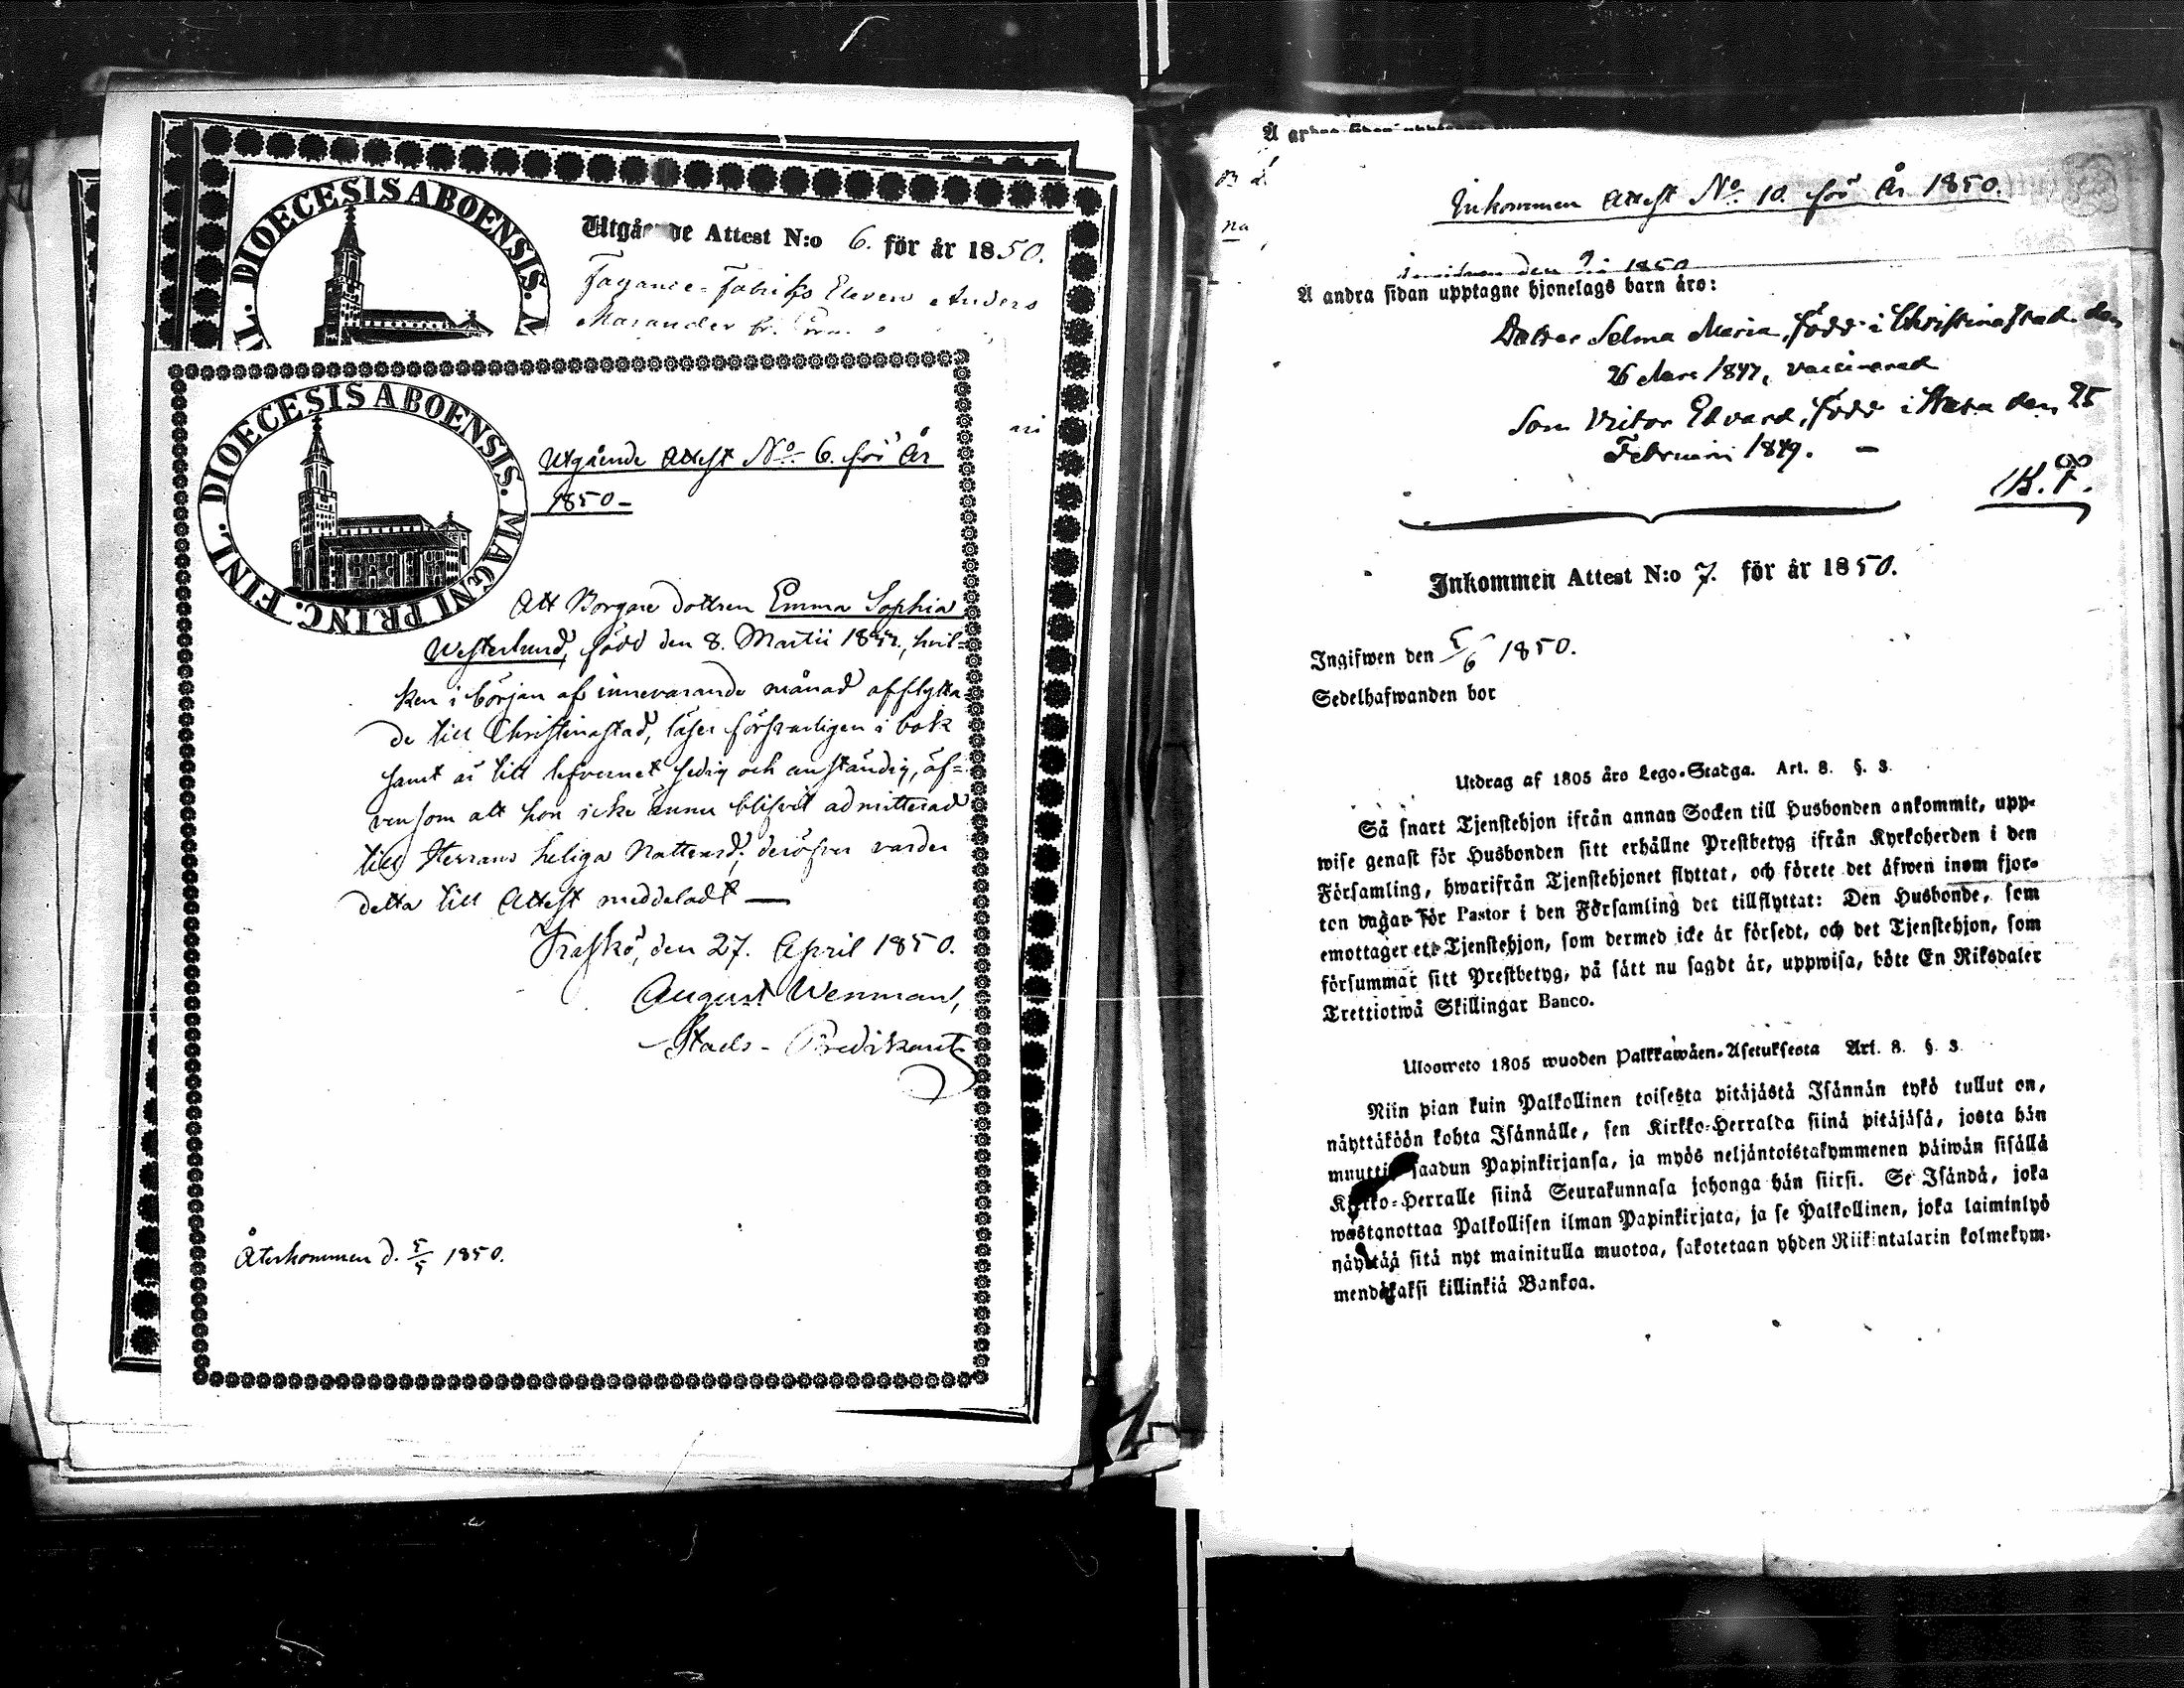 DIOECESIS ABOENSIS. M
NL.
Utgående Attest N:o 6. för år 1850.
Fayance-Fabriks Eleven Anders
DIOECESIS ABOENSIS. MAGNI PRINC. FINL.
Utgående Attest No. 6. för År
1850-
Att Borgare dottren Emma Sophia
Westerlund, född den 8. Martii, hvil-
ken i början af innevarande månad afflytta-
de till Christinastad, läser försvarligen i bok
samt är till lefvernet sedig och anständig, äf-
vensom att hon icke ännu blifvit admitterad
till Herrans heliga Nattvard; deröfver varder
detta till Attest meddeladt —
den 27. April 1850.
August Wenman,
Stads-Predikant
Återkommen d. 5/5 1850.
Inkommen Attest No. 10. för År 1850.
den 1850
Å andra sidan upptagne hjonelags barn äro:
Dotter Selma Maria, född i Christinastad den
26 Mars 1847, vaccinerad
Son Victor Edvard, född i Wasa den 25
Februari 1849. —
Inkommen Attest N:o 7. för år 1850.
Ingifwen den 5/6 1850.
Sedelhafwanden bor
Utdrag af 1805 års Lego-Stadga. Art. 8. §. 3.
Så snart Tjenstehjon ifrån annan Socken till Husbonden ankommit, upp-
wise genast för Husbonden sitt erhållne Prestbetyg ifrån Kyrkoherden i den
Församling, hwarifrån Tjenstehjonet flyttat, och förete det äfwen inom fjor-
ton dagar för Pastor i den Församling det tillflyttat: Den Husbonde, som
emottager ett Tjenstehjon, som dermed icke är försedt, och det Tjenstehjon, som
försummar sitt Prestbetyg, på sätt nu sagdt är, uppwisa, böte En Riksdaler
Trettiotwå Skillingar Banco.
Ulosweto 1805 wuoden Palkkawäen-Asetuksesta Art. 8. §. 3.
Niin pian kuin Palkollinen toisesta pitäjästä Isännän tykö tullut on,
näyttäköön kohta Isännälle, sen Kirkko-Herralda siinä pitäjäsä, josta hän
muutti, saadun Papinkirjansa, ja myös neljäntoistakymmenen päiwän sisällä
Kirkko-Herralle siinä Seurakunnasa johonga hän siirsi. Se Isändä, joka
wastanottaa Palkollisen ilman Papinkirjata, ja se Palkollinen, joka laiminlyö
näyttää sitä nyt mainitulla muotoa, sakotetaan yhden Riikintalarin kolmekym-
mendäkaksi killinkiä Bankoa.